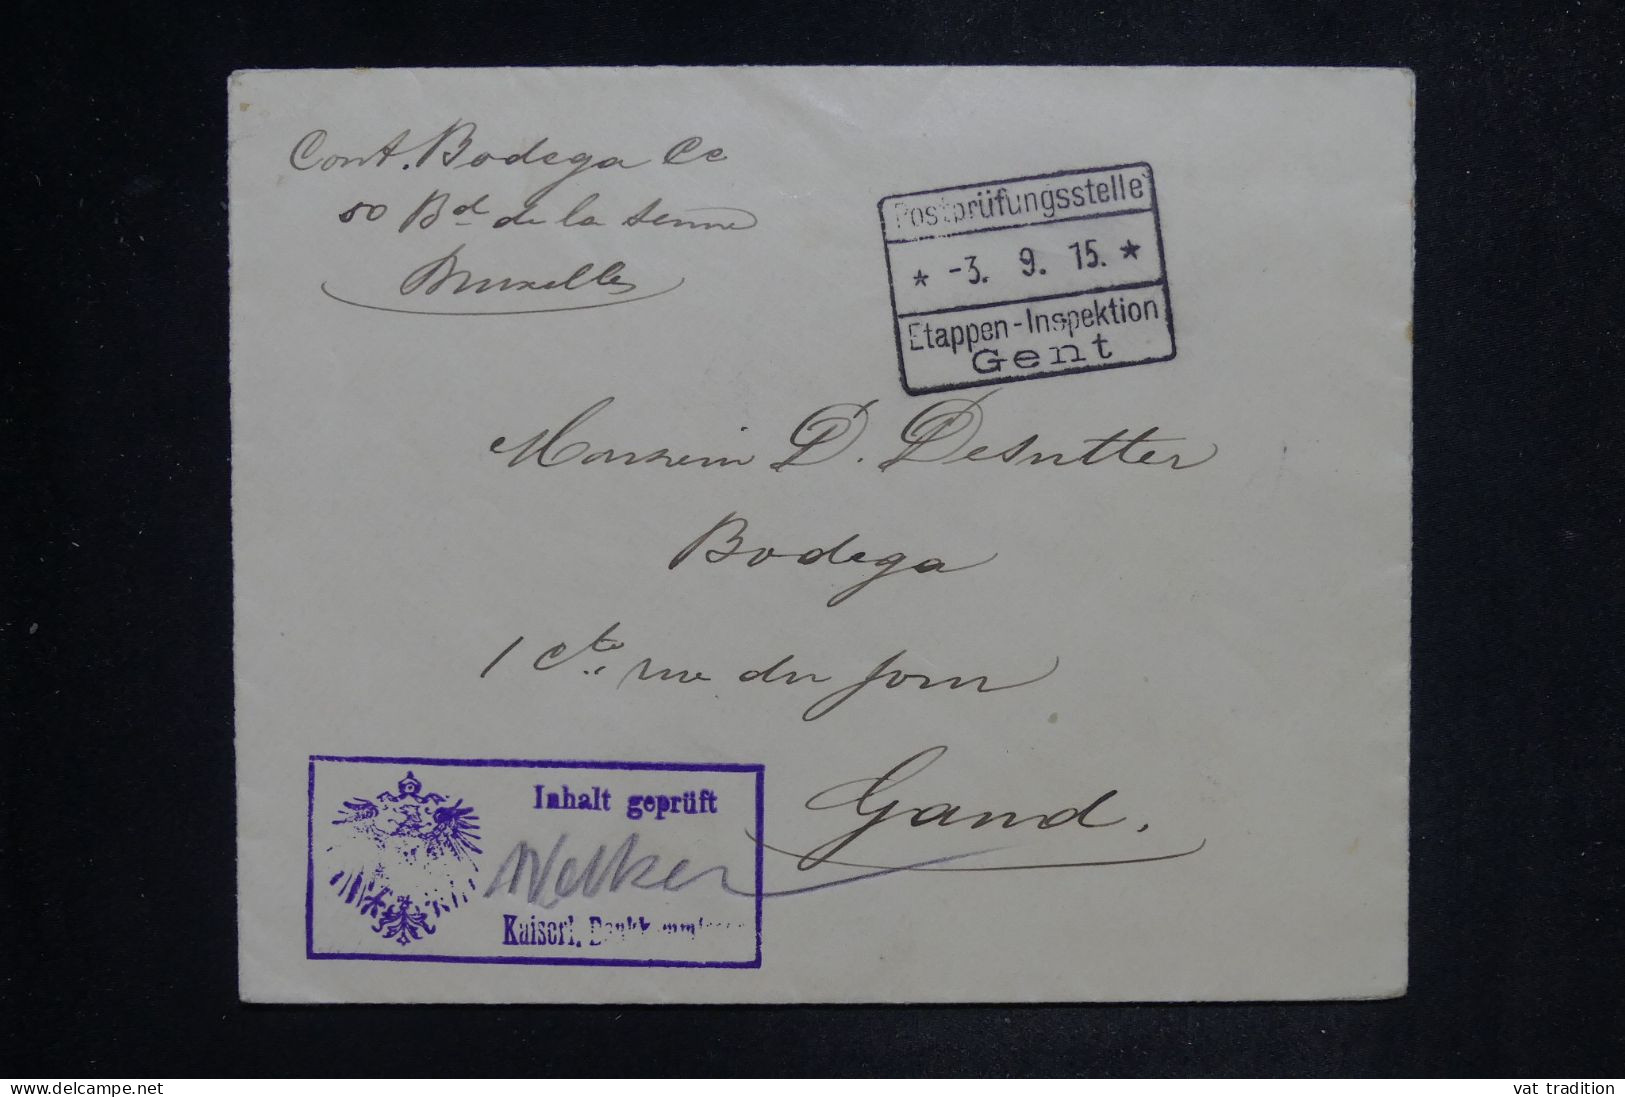 Cont. Bodega Cc
50 Bd de la Senne
Bruxelles
Postprüfungsstelle
* -3. 9. 15. *
Etappen-Inspektion
Gent
Monsieur D. Desutter
Bodega
1 Cte. rue du jour
Gand.
Inhalt geprüft
Welker
Kaiserl. Bankkommissar
www.delcampe.net
vat tradition